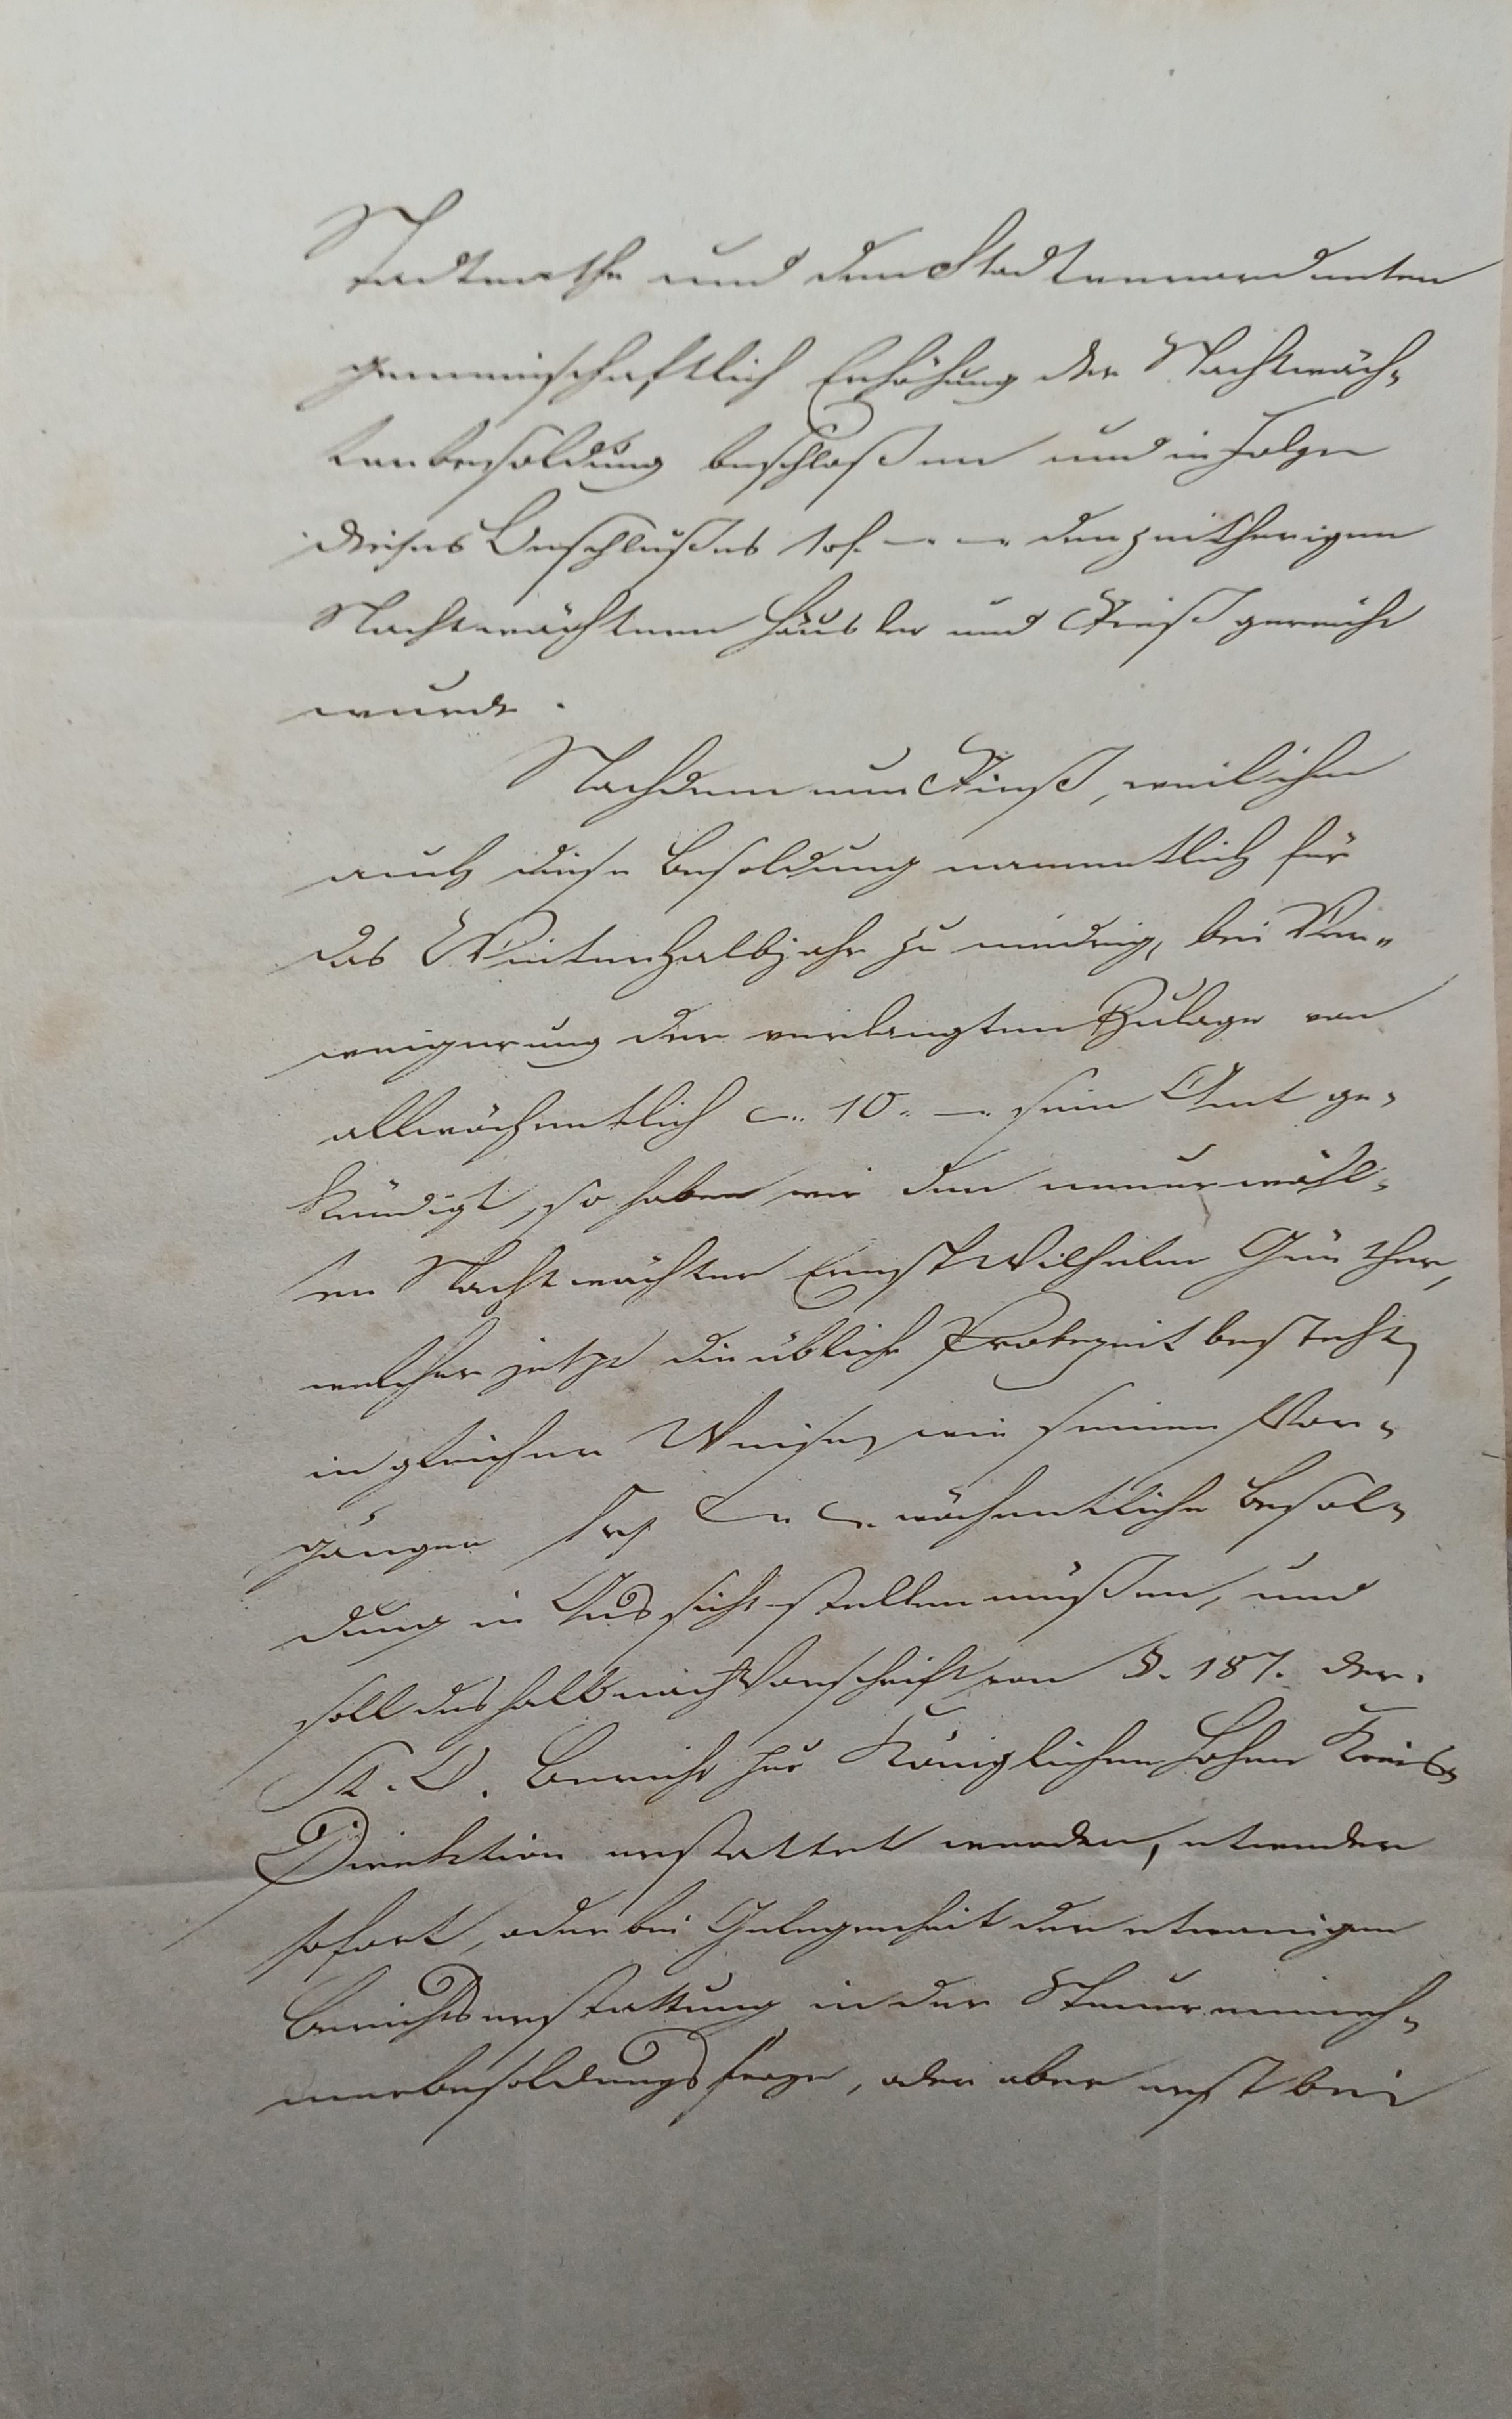 Stadtrathe und den Stadtverordneten
gemeinschaftlich Erhöhung der Nachtwäch-
terbesoldung beschloßen und in Folge
dieses Beschlußes 1 rh. — — den zeitherigen
Nachtwächtern Häusler und gereicht
wurde.
Nachdem nun, weil ihm
auch diese Besoldung namentlich für
das Winterhalbjahr zu niedrig, bei Ver-
weigerung der verlangten Zulage von
allwöchentlich —. 10. —. sein Amt ge-
kündigt, so haben wir dem neuerwähl-
ten Nachtwächter Ernst Wilhelm Günther,
welcher jetzt die übliche Probezeit besteht,
in gleicher Weise, wie seinem Vor-
gänger 1 rh. — — wöchentliche Besol-
dung in Aussicht stellen müßen, und
soll deshalb nach Vorschrift von §. 187. der.
St. O. Bericht zur Königlichen Hohen Kreis-
Direktion erstattet werden, entweder
sofort, oder bei Gelegenheit der etwanigen
Berichtserstattung in der Steuereinneh-
merbesoldungsfrage, oder aber erst bei